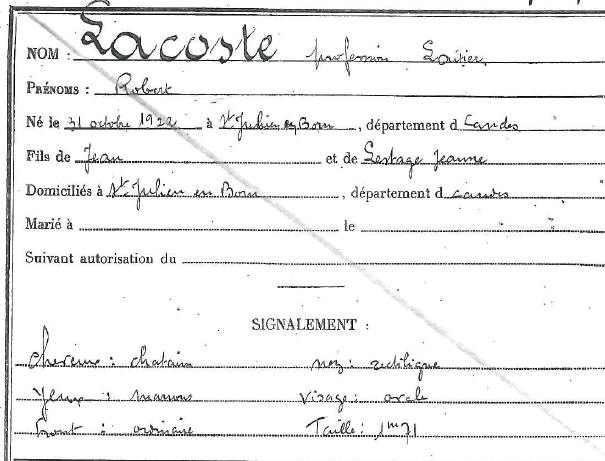 NOM : Lacoste profession
PRÉNOMS : Robert
Né le 31 octobre 1922 à St Julien en Born, département d Landes
Fils de Jean et de Lestage Jeanne
Domiciliés à St Julien en Born, département d Landes
Marié à le
Suivant autorisation du
SIGNALEMENT :
cheveux : chatain nez : rectiligne
Yeux : marrons Visage : ovale
Front : ordinaire Taille : 1m71